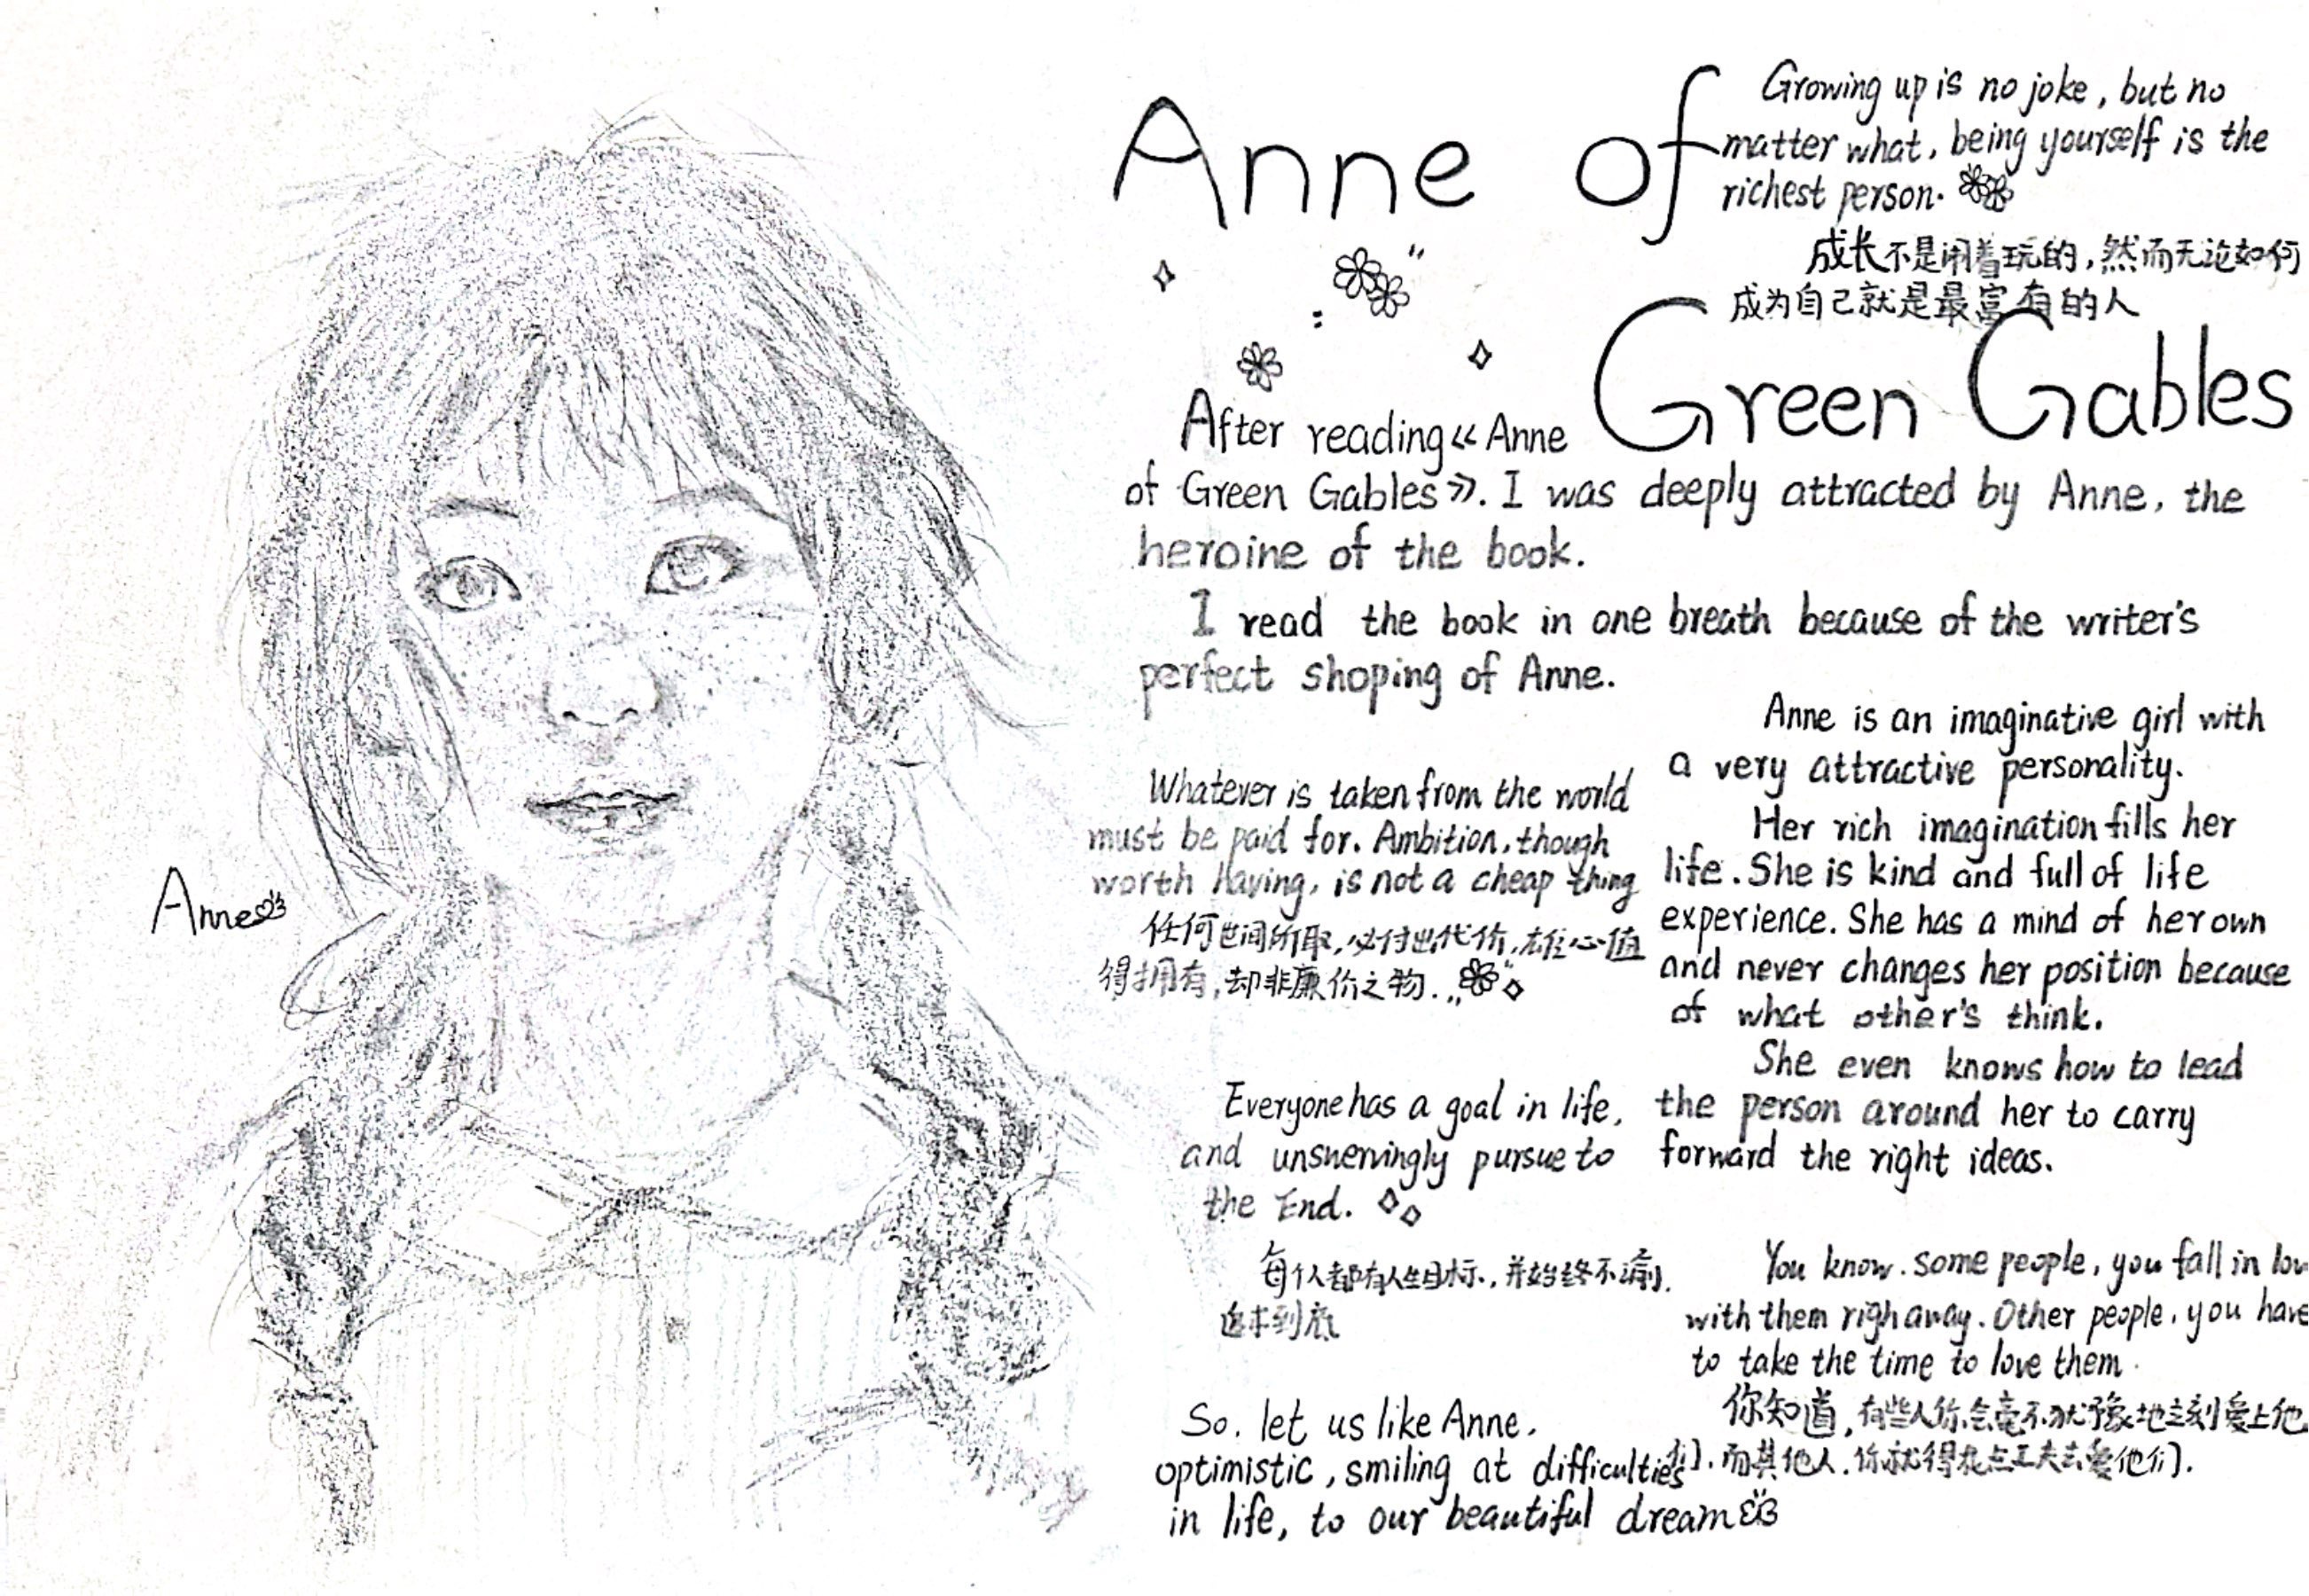 Anne of
Growing up is no joke, but no
matter what, being yourself is the
richest person.
成长不是闹着玩的，然而无论如何
成为自己就是最富有的人
Green Gables
After reading《Anne
of Green Gables》. I was deeply attracted by Anne, the
heroine of the book.
I read the book in one breath because of the writer's
perfect shoping of Anne.
Anne is an imaginative girl with
a very attractive personality.
Her rich imagination fills her
life. She is kind and full of life
experience. She has a mind of her own
and never changes her position because
of what other's think.
She even knows how to lead
the person around her to carry
forward the right ideas.
Whatever is taken from the world
must be paid for. Ambition, though
worth having, is not a cheap thing
任何世间所取，必付出代价，雄心值
得拥有，却非廉价之物.
Everyone has a goal in life,
and unsnervingly pursue to
the End.
每个人都有人生目标，并始终不渝，
追求到底
You know. some people, you fall in lov
with them righ away. Other people, you have
to take the time to love them.
你知道，有些人你会毫不犹豫地立刻爱上他
们. 而其他人. 你就得花点工夫去爱他们.
So. let us like Anne,
optimistic, smiling at difficulties
in life, to our beautiful dream
Anne